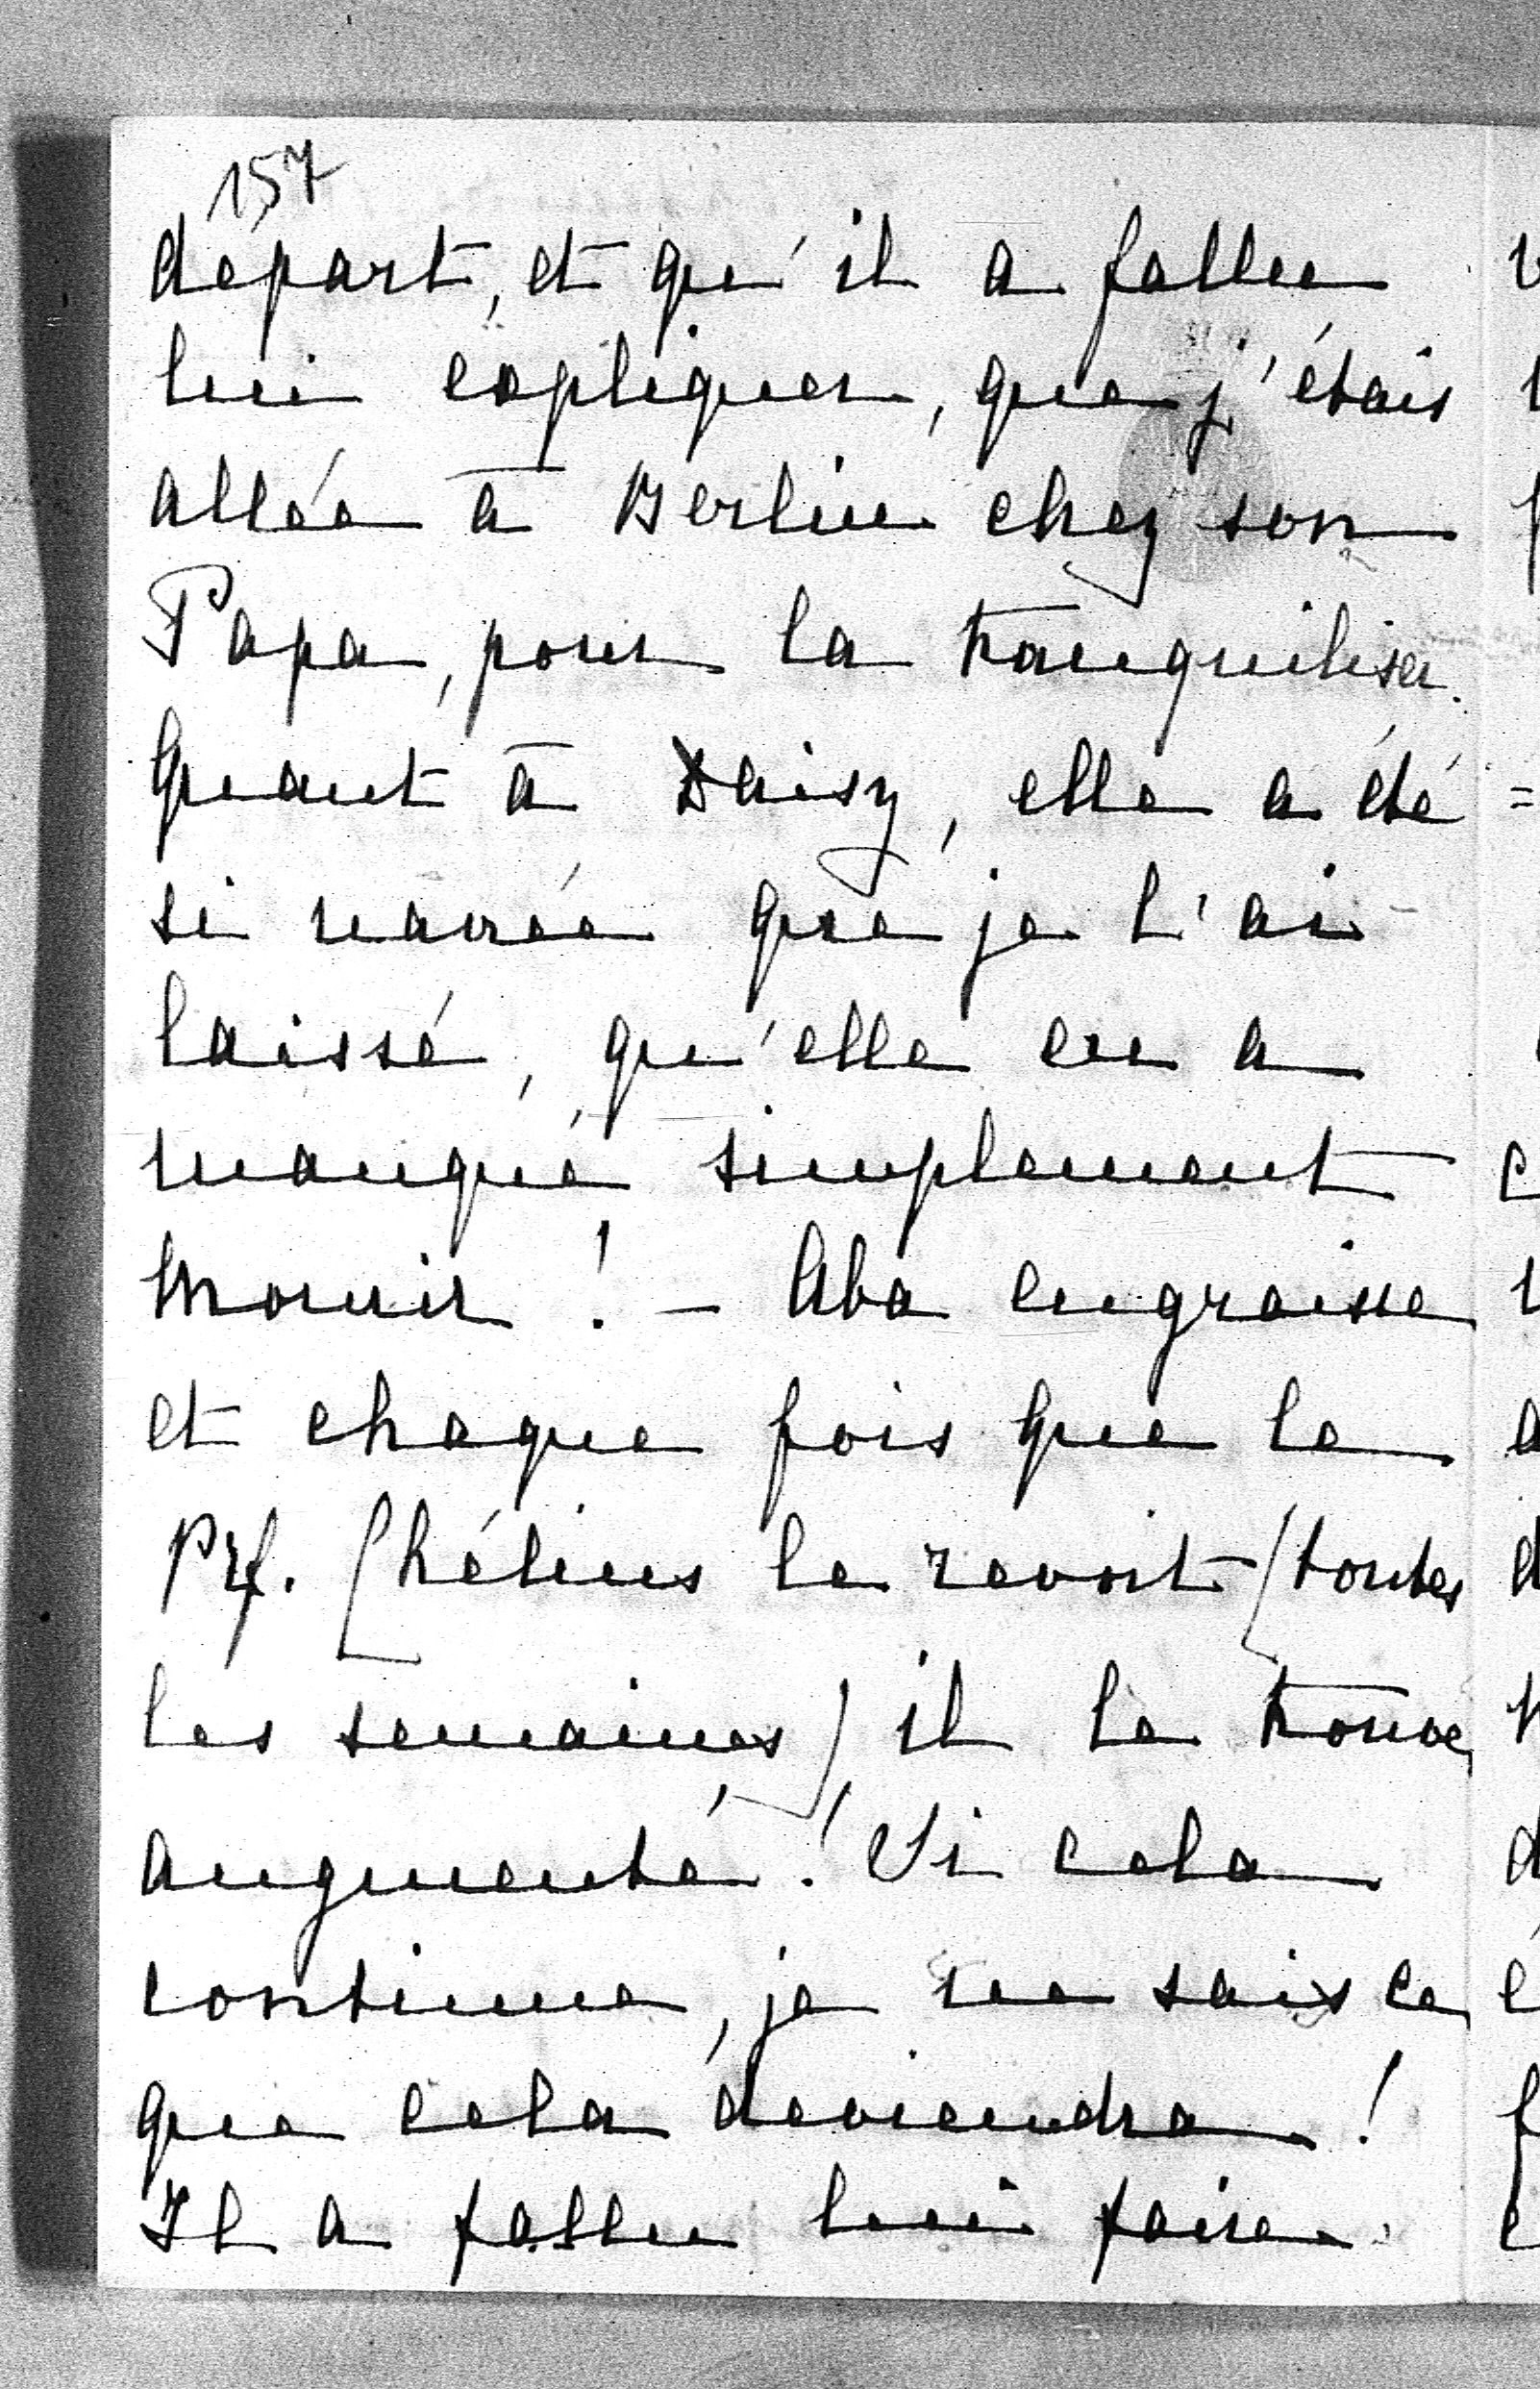 157
départ, et qu'il a fallu
lui expliquer, que j'étais
allée à Berlin chez son
Papa, pour la tranquiliser.
Quant à Daisy, elle a été
si navrée que je l'ai
laissé, qu'elle en a
manqué simplement
mourir ! – Aba engraisse
et chaque fois que le
Prf. [hélius la revoit [toutes
les semaines] il la trouve
augmentée ! Si cela
continue, je ne sais ce
que cela deviendra !
Il a fallu lui faire